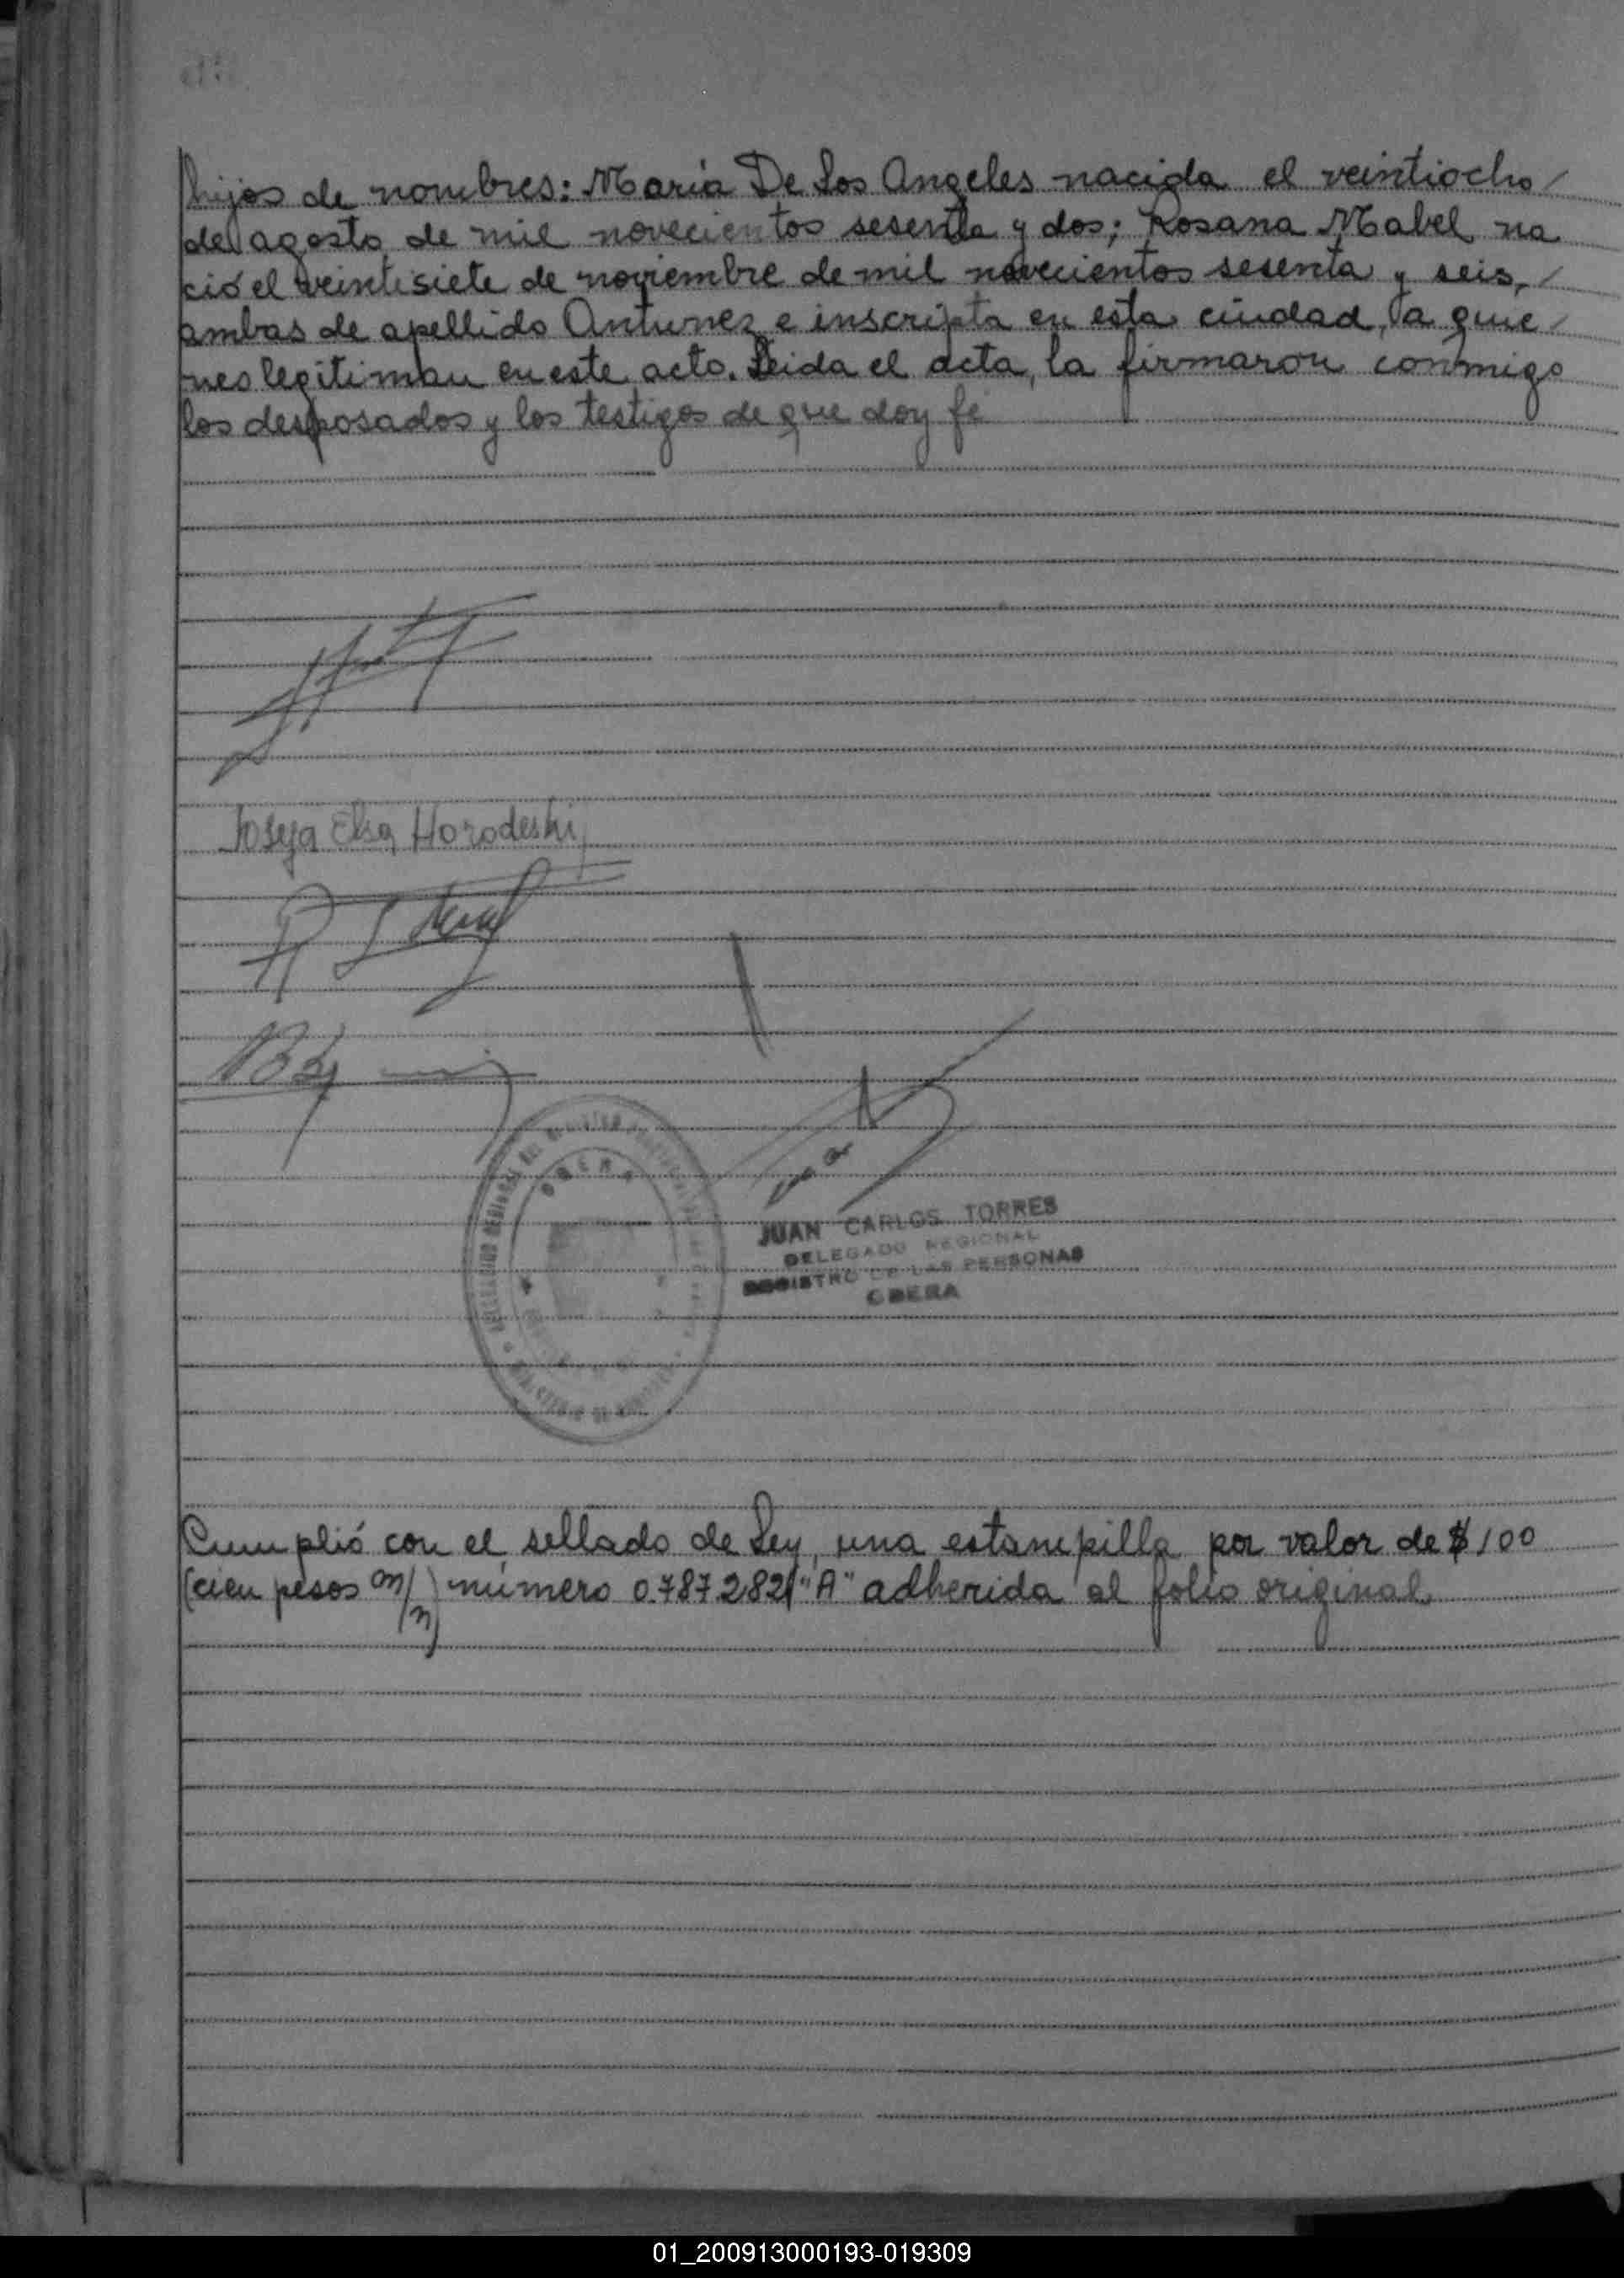 hijos de nombres: María De Los Angeles nacida el veintiocho /
de agosto de mil novecientos sesenta y dos; Rosana Mabel na
ció el veintisiete de noviembre de mil novecientos sesenta y seis, /
ambas de apellido Antunez e inscripta en esta ciudad, a quie /
nes legitiman en este acto. Leida el acta, la firmaron conmigo
los desposados y los testigos de que doy fé
Elsa Horodeski
OBERA
JUAN CARLOS TORRES
DELEGADO REGIONAL
REGISTRO DE LAS PERSONAS
OBERA
Cumplió con el sellado de Ley, una estampilla por valor de $ 100
(cien pesos m/n) número 0787282 "A" adherida al folio original
01_200913000193-019309